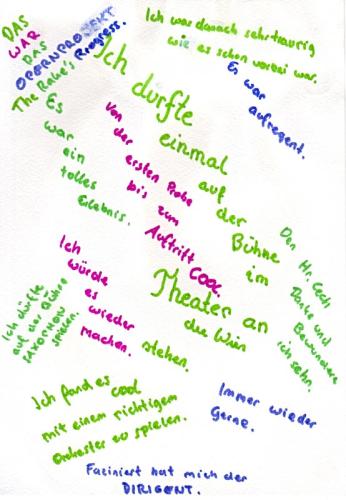 DAS
WAR
DAS
OPERNPROJEKT
The Rake's Progress.
Ich war danach sehr traurig
wie es schon vorbei war.
Es war
aufregent.
Ich
durfte
einmal
auf
der
Bühne
im
Theater an
die Wien
stehen.
Es
war
ein
tolles
Erlebnis.
Von
der
ersten Probe
bis zum
Auftritt COOL.
Ich
würde
es
wieder
machen.
Den Hr.
Danke und
Bewundere
ich sehr.
Ich dürfte
auf der Bühne
spielen.
Ich fand es cool
mit einem richtigem
Orchester zu spielen.
Immer wieder
Gerne.
Fasziniert hat mich der
DIRIGENT.